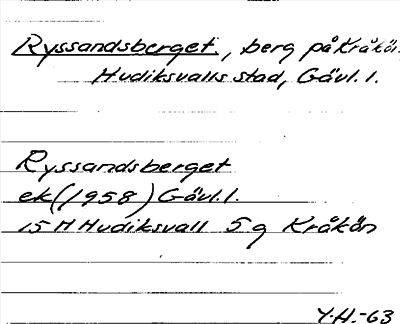 Ryssandsberget, berg på Kråkön
Hudiksvalls stad, Gävl. l.
Ryssandsberget
ek (1958) Gävl. l.
15 H Hudiksvall 5g Kråkön
Y.H.-63